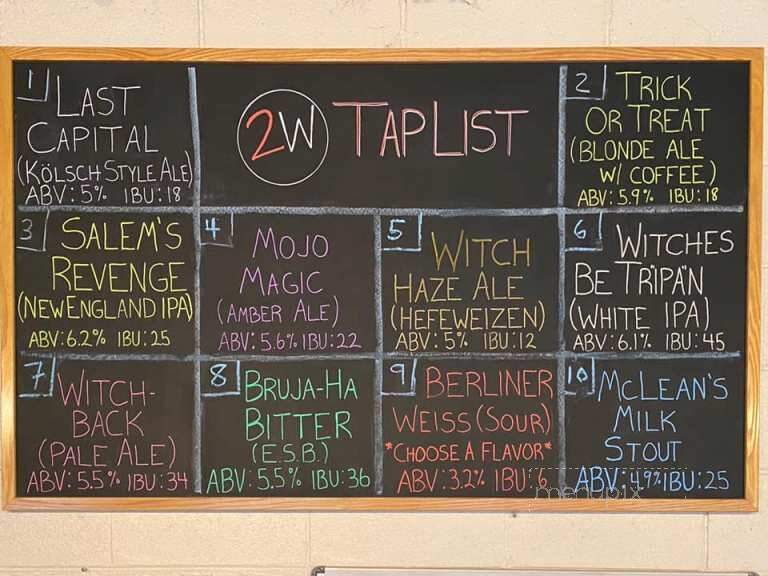 2W TAPLIST
1
LAST
CAPITAL
(KÖLSCH STYLE ALE)
ABV: 5% IBU: 18
2
TRICK
OR TREAT
(BLONDE ALE
W/ COFFEE)
ABV: 5.9% IBU: 18
3
SALEM'S
REVENGE
(NEW ENGLAND IPA)
ABV: 6.2% IBU: 25
4
MOJO
MAGIC
(AMBER ALE)
ABV: 5.6% IBU: 22
5
WITCH
HAZE ALE
(HEFEWEIZEN)
ABV: 5% IBU: 12
6
WITCHES
BE TRIPAN
(WHITE IPA)
ABV: 6.1% IBU: 45
7
WITCH-
BACK
(PALE ALE)
ABV: 5.5% IBU: 34
8
BRUJA-HA
BITTER
(E.S.B.)
ABV: 5.5% IBU: 36
9
BERLINER
WEISS (SOUR)
*CHOOSE A FLAVOR*
ABV: 3.2% IBU: 6
10
MCLEAN'S
MILK
STOUT
ABV: 4.9% IBU: 25
menupix